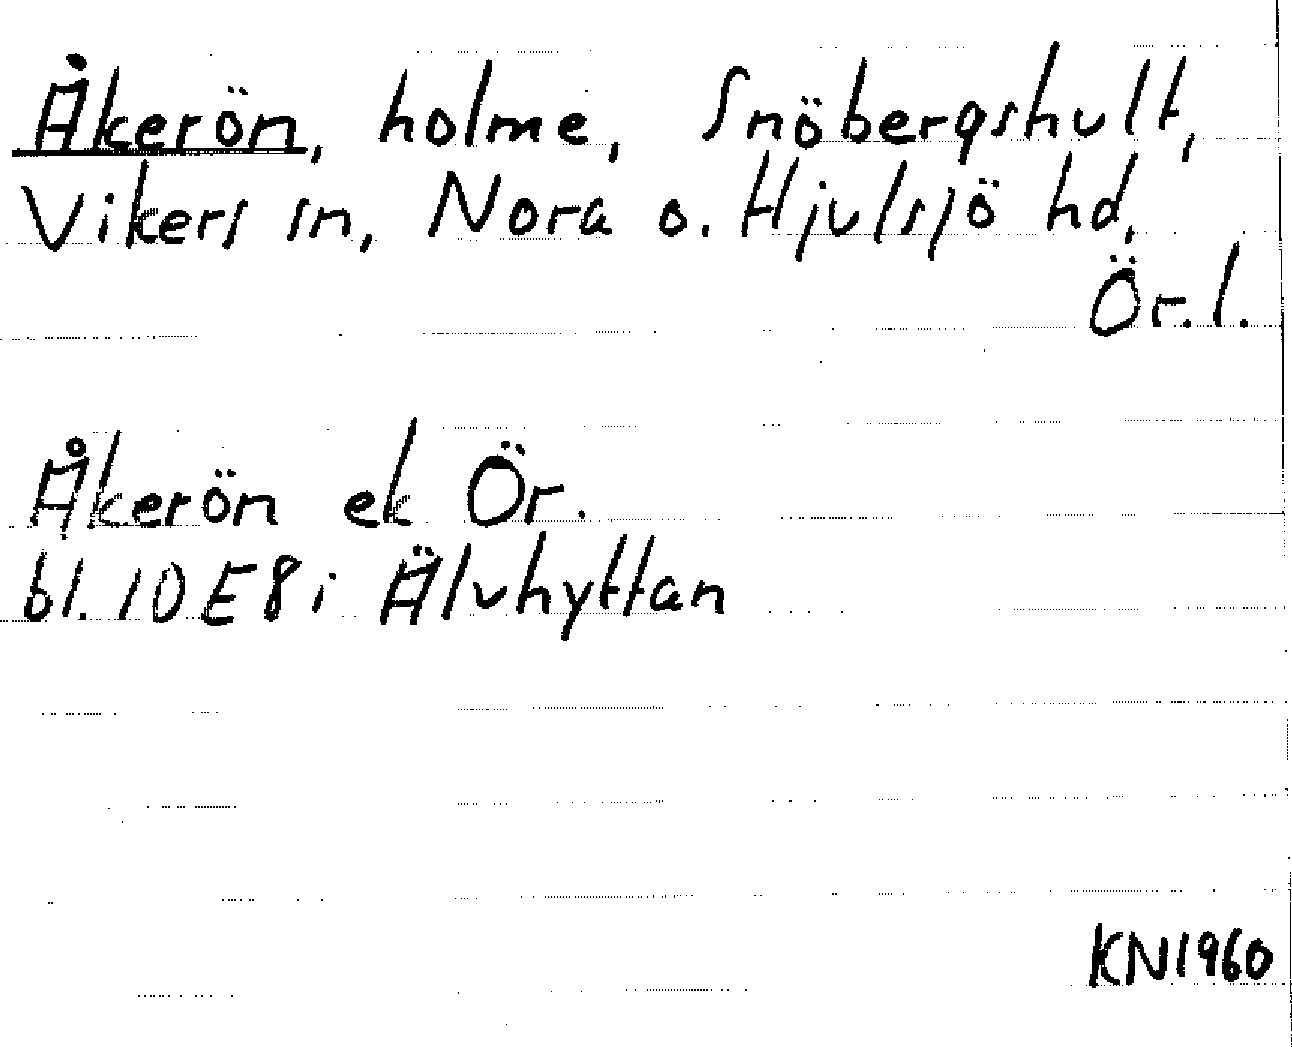 Åkerön, holme, Snöbergshult,
Vikers sn, Nora o. Hjulsjö hd,
Ör.l.
Åkerön ek Ör.
bl. 10E8i Älvhyttan
KN1960